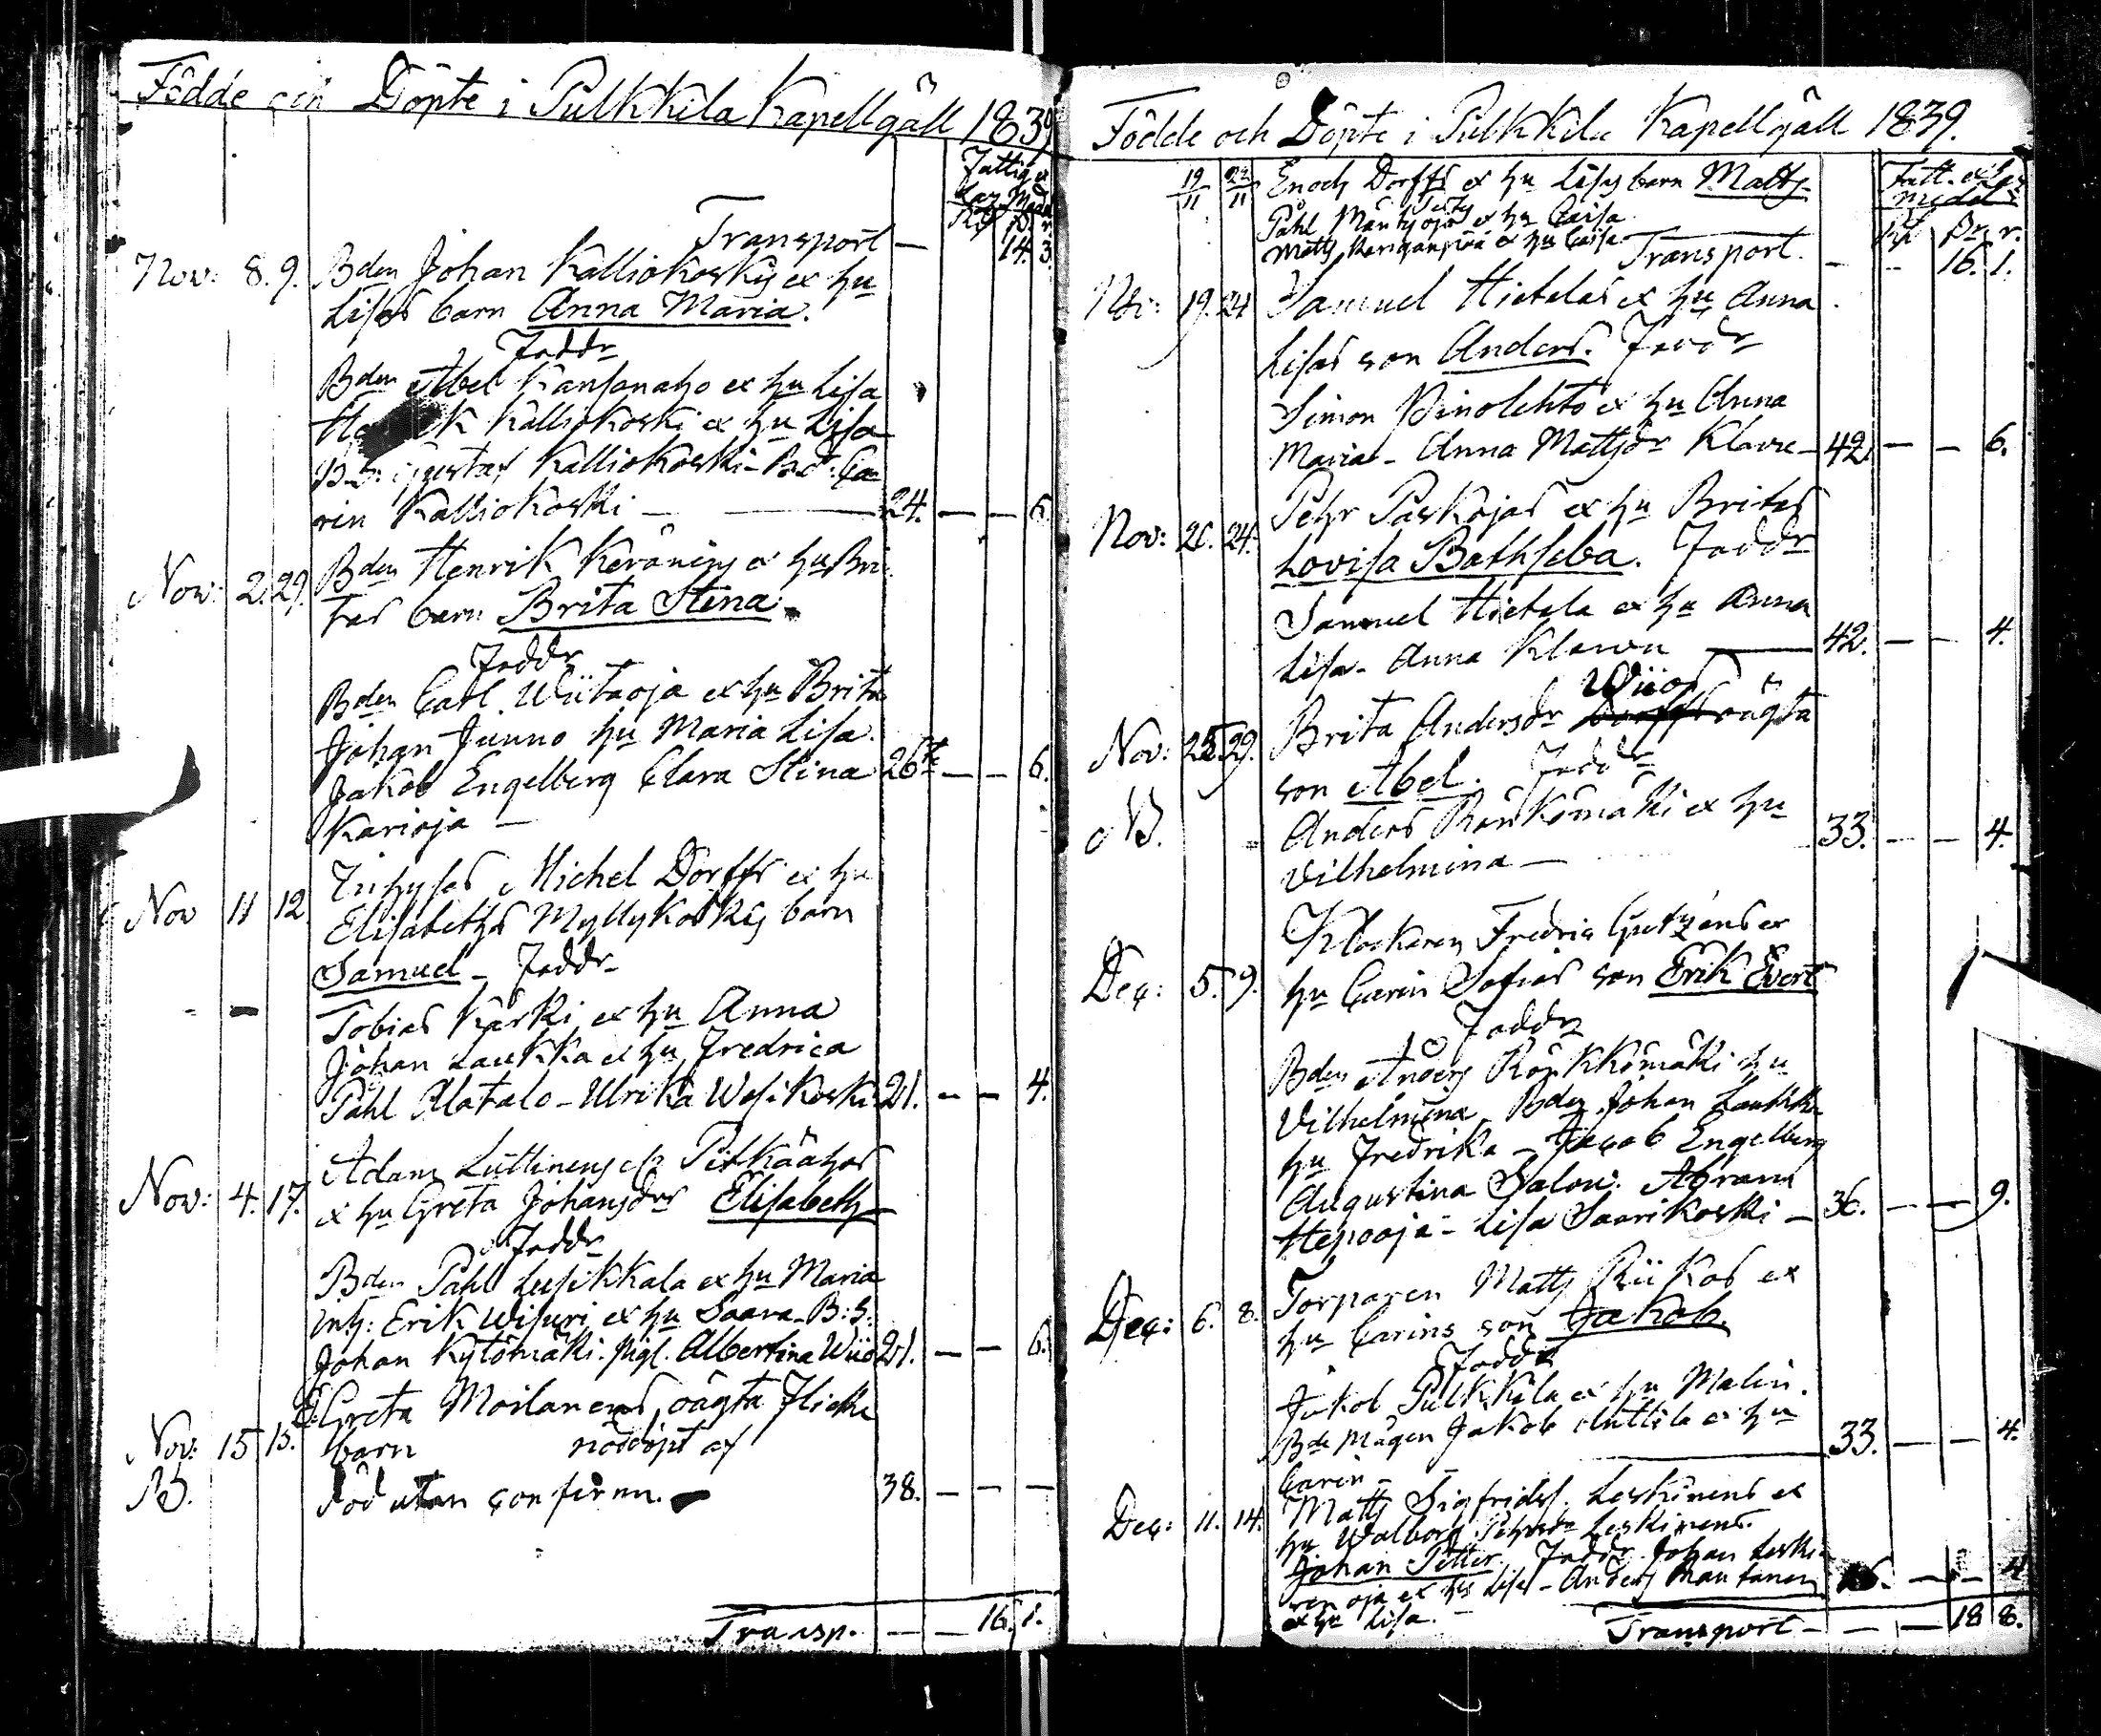 Födde och Döpte i Pulkkila Kapellgäll 1839
Fattig o
Laz. Medel
Rf. k. r.
Transport — 14. 3.
Nov: 8. 9. Bden Johan Kalliokoskis ex hu
Lisas barn Anna Maria.
Faddr
Bden Abel Kansanaho ex hu Lisa
Kalliokoski ex hu Lisa
B.S: Gustaf Kalliokoski - Bd: Ca
rin Kalliokoski — 24. — — 6.
Nov: 2. 29. Bden Henrik Keränens ex hu Bri
tas barn Brita Stina
Faddr
Bden Carl Wiitaoja ex hu Brita
Johan Junno hu Maria Lisa.
Jakob Engelberg Clara Stina 26 — — 6.
Karioja —
Inhyses Michel Dorffs ex hu
Nov 11 12. Elisabeths Myllykoskis barn
Samuel - Faddr
Tobias Karki ex hu Anna
Johan Laukka ex hu Fredrica
Påhl Alatalo - Ulrika Wesikoski 21. — — 4.
Adam Luttinens Pitkäähos
Nov: 4. 17. ex hu Greta Johansdrs Elisabeth
Faddr
Bden Påhl Lusikkala ex hu Maria
Inh: Erik Wisuri ex hu Saara - B:S:
Johan Kytömäki. Pig. Albertina Wiio 21. — — 6.
Greta Moilanens oägta Flicke
Nov: 15. 15. barn nöddöpt af
NB. död utan confirm. 38. — — —
Transp. — — 16. 1.
Födde och Döpte i Pulkkila Kapellgäll 1839.
19/11 22/11 Enoch Dorffs ex hu Lisas barn Matts
Fatt. ex Laz
medel
Påhl Mäntyoja ex hu Caisa
Matts ex hu Caisa Transport. — — 16. 1.
Nov: 19. 24 Samuel Hietalas ex hu Anna
Lisas son Anders. Faddr
Simon Pinolehto ex hu Anna
Maria - Anna Mattsdr Klavu — 42 — — 6.
Pehr Paskojas ex hu Britas
Nov: 20. 24. Lovisa Bathseba. Faddr
Samuel Hietala ex hu Anna
Lisa - Anna Klavu — 42. — — 4.
Wiios
Brita Andersdr oägta
Nov: 25. 29. son Abel. Faddr
NB. Anders Rönkömäki ex hu 33. — — 4.
Vilhelmina —
Klockaren Fredric Gutzens ex
Dec: 5. 9. hu Carin Sofias son Erik Evert
Faddr
Bden Anders Rönkkömäki hu
Vilhelmina Bden Johan Laukka
hu Fredrika - Jacob Engelberg
Augustina Saloni. Abram
Hepooja - Lisa Saarikoski — 36. — — 9.
Torparen Matts Riikos ex
Dec: 6. 8. hu Carins son Jakob.
Faddr
Jakob Pulkkila ex hu Malin.
Bde Mågen Jakob Anttila ex hu 33. — — 4.
Carin —
Dec: 11. 14. Matts Sigfrids. Leskinens ex
hu Walborg Pehrsdr Leskinens.
Johan Petter Faddr Johan Leski
ren oja ex hu Lisa - Anders Rautanen — — 4
ex hu Lisa.
Transport — — — 18 8.